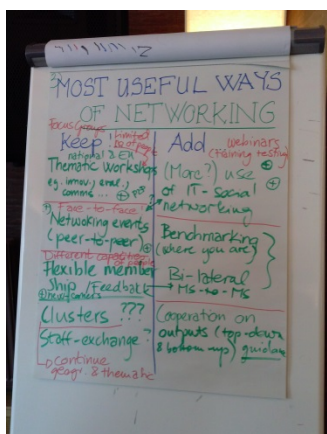 MOST USEFUL WAYS
OF NETWORKING
Focus groups
limited
Keep
national & EU
Thematic workshops
e.g. innov., eval.,
comms ...
Face-to-face!
Networking events
(peer-to-peer)
Different
Flexible member
ship /Feedback
Clusters ???
Staff-exchange ?
continue
geogr. & thematic
Add webinars
(training testing)
(More?) use
of IT-social
networking
Benchmarking
(where you are)
Bi-lateral
Ms-to-Ms
Cooperation on
outputs (top-down
& bottom up)